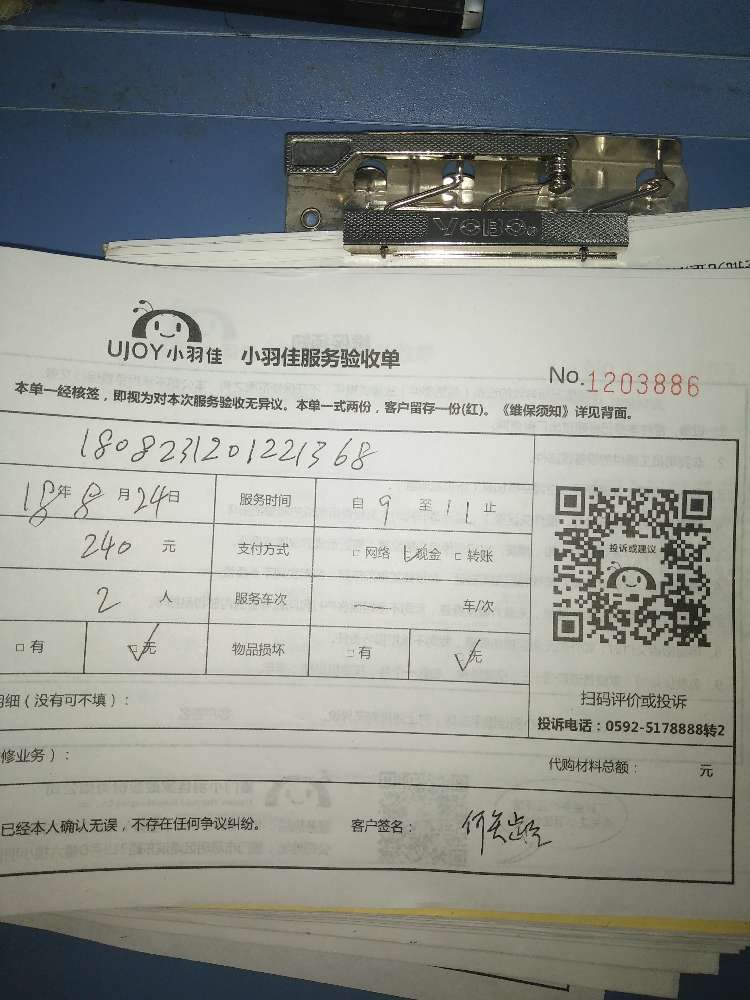 VOBO
UJOY小羽佳 小羽佳服务验收单
No.1203886
本单一经核签，即视为对本次服务验收无异议。本单一式两份，客户留存一份(红)。《维保须知》详见背面。
1808231201221368
18年8月24日 服务时间 自9至11止
240元 支付方式 □网络 □现金 □转账
投诉或建议
2人 服务车次 车/次
□有 □无 物品损坏 □有 □无
扫码评价或投诉
明细（没有可不填）：
投诉电话：0592-5178888转2
修业务）：
代购材料总额： 元
已经本人确认无误，不存在任何争议纠纷。 客户签名：